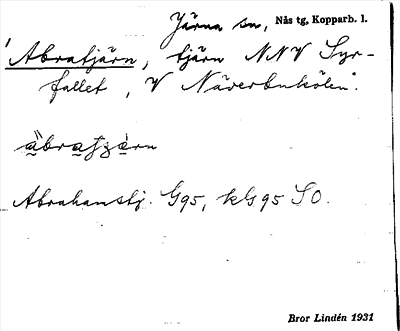 Järna sn, Nås tg, Kopparb. l.
Abratjärn, tjärn NNV Syr-
fallet, V Näverbukölen.
Abrahamstj. G95, kG95 SO.
Bror Lindén 1931